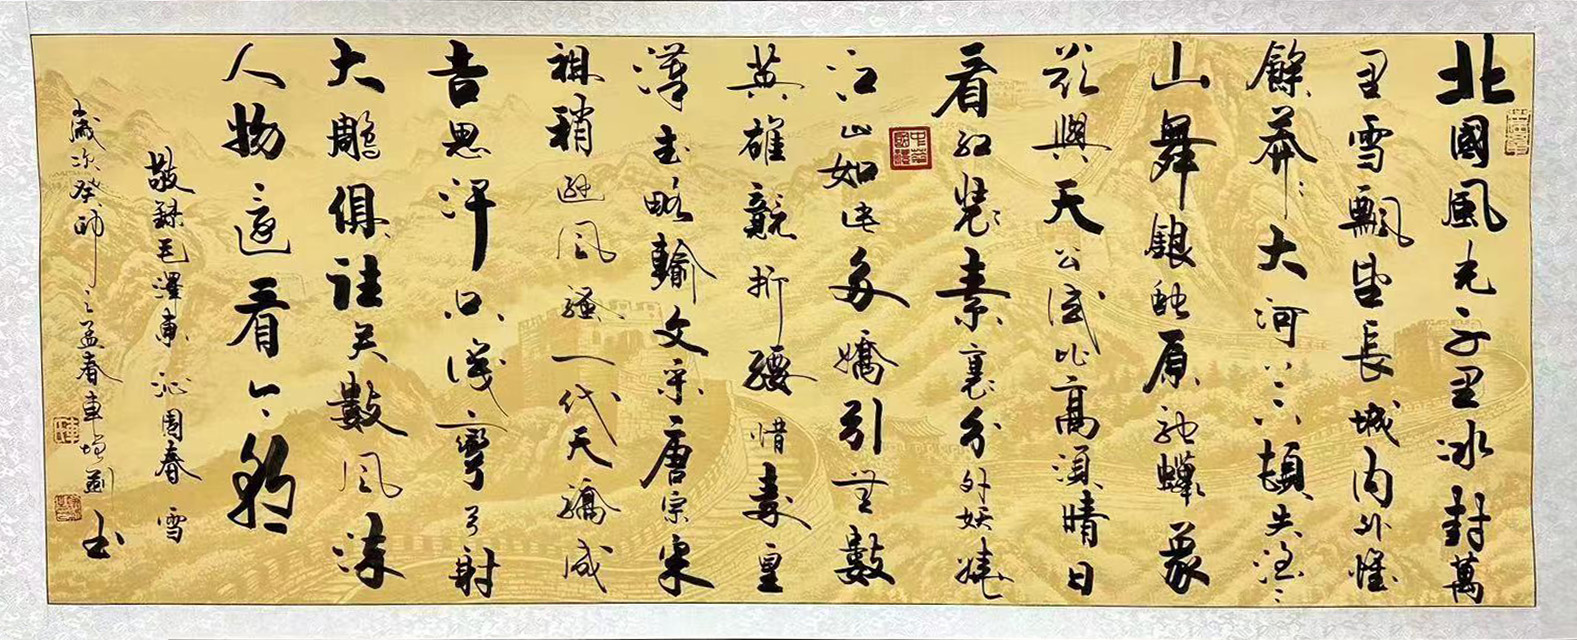 北國風光千里冰封萬
里雪飄望長城內外惟
餘莽々大河上下頓失滔々
山舞銀蛇原馳蠟象
欲與天公試比高須晴日
看紅裝素裹分外妖嬈
江山如此多嬌引無數
英雄競折腰惜秦皇
漢武略輸文采唐宗宋
祖稍遜風騷一代天驕成
吉思汗只識彎弓射
大鵰俱往矣數風流
人物還看今朝
敬錄毛澤東沁園春雪
歲次癸卯之孟春車書